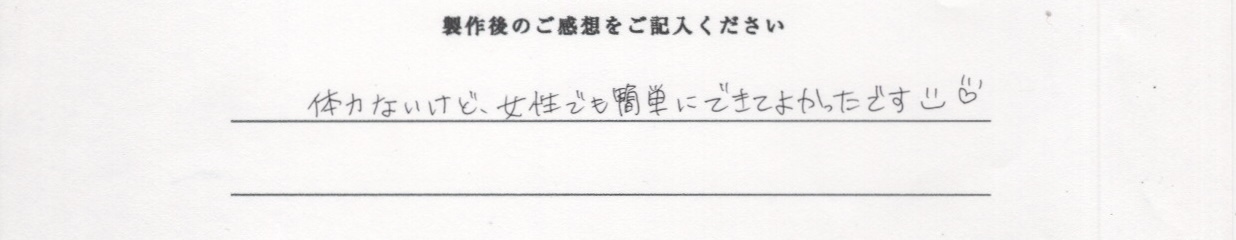 製作後のご感想をご記入ください
体力ないけど、女性でも簡単にできてよかったです